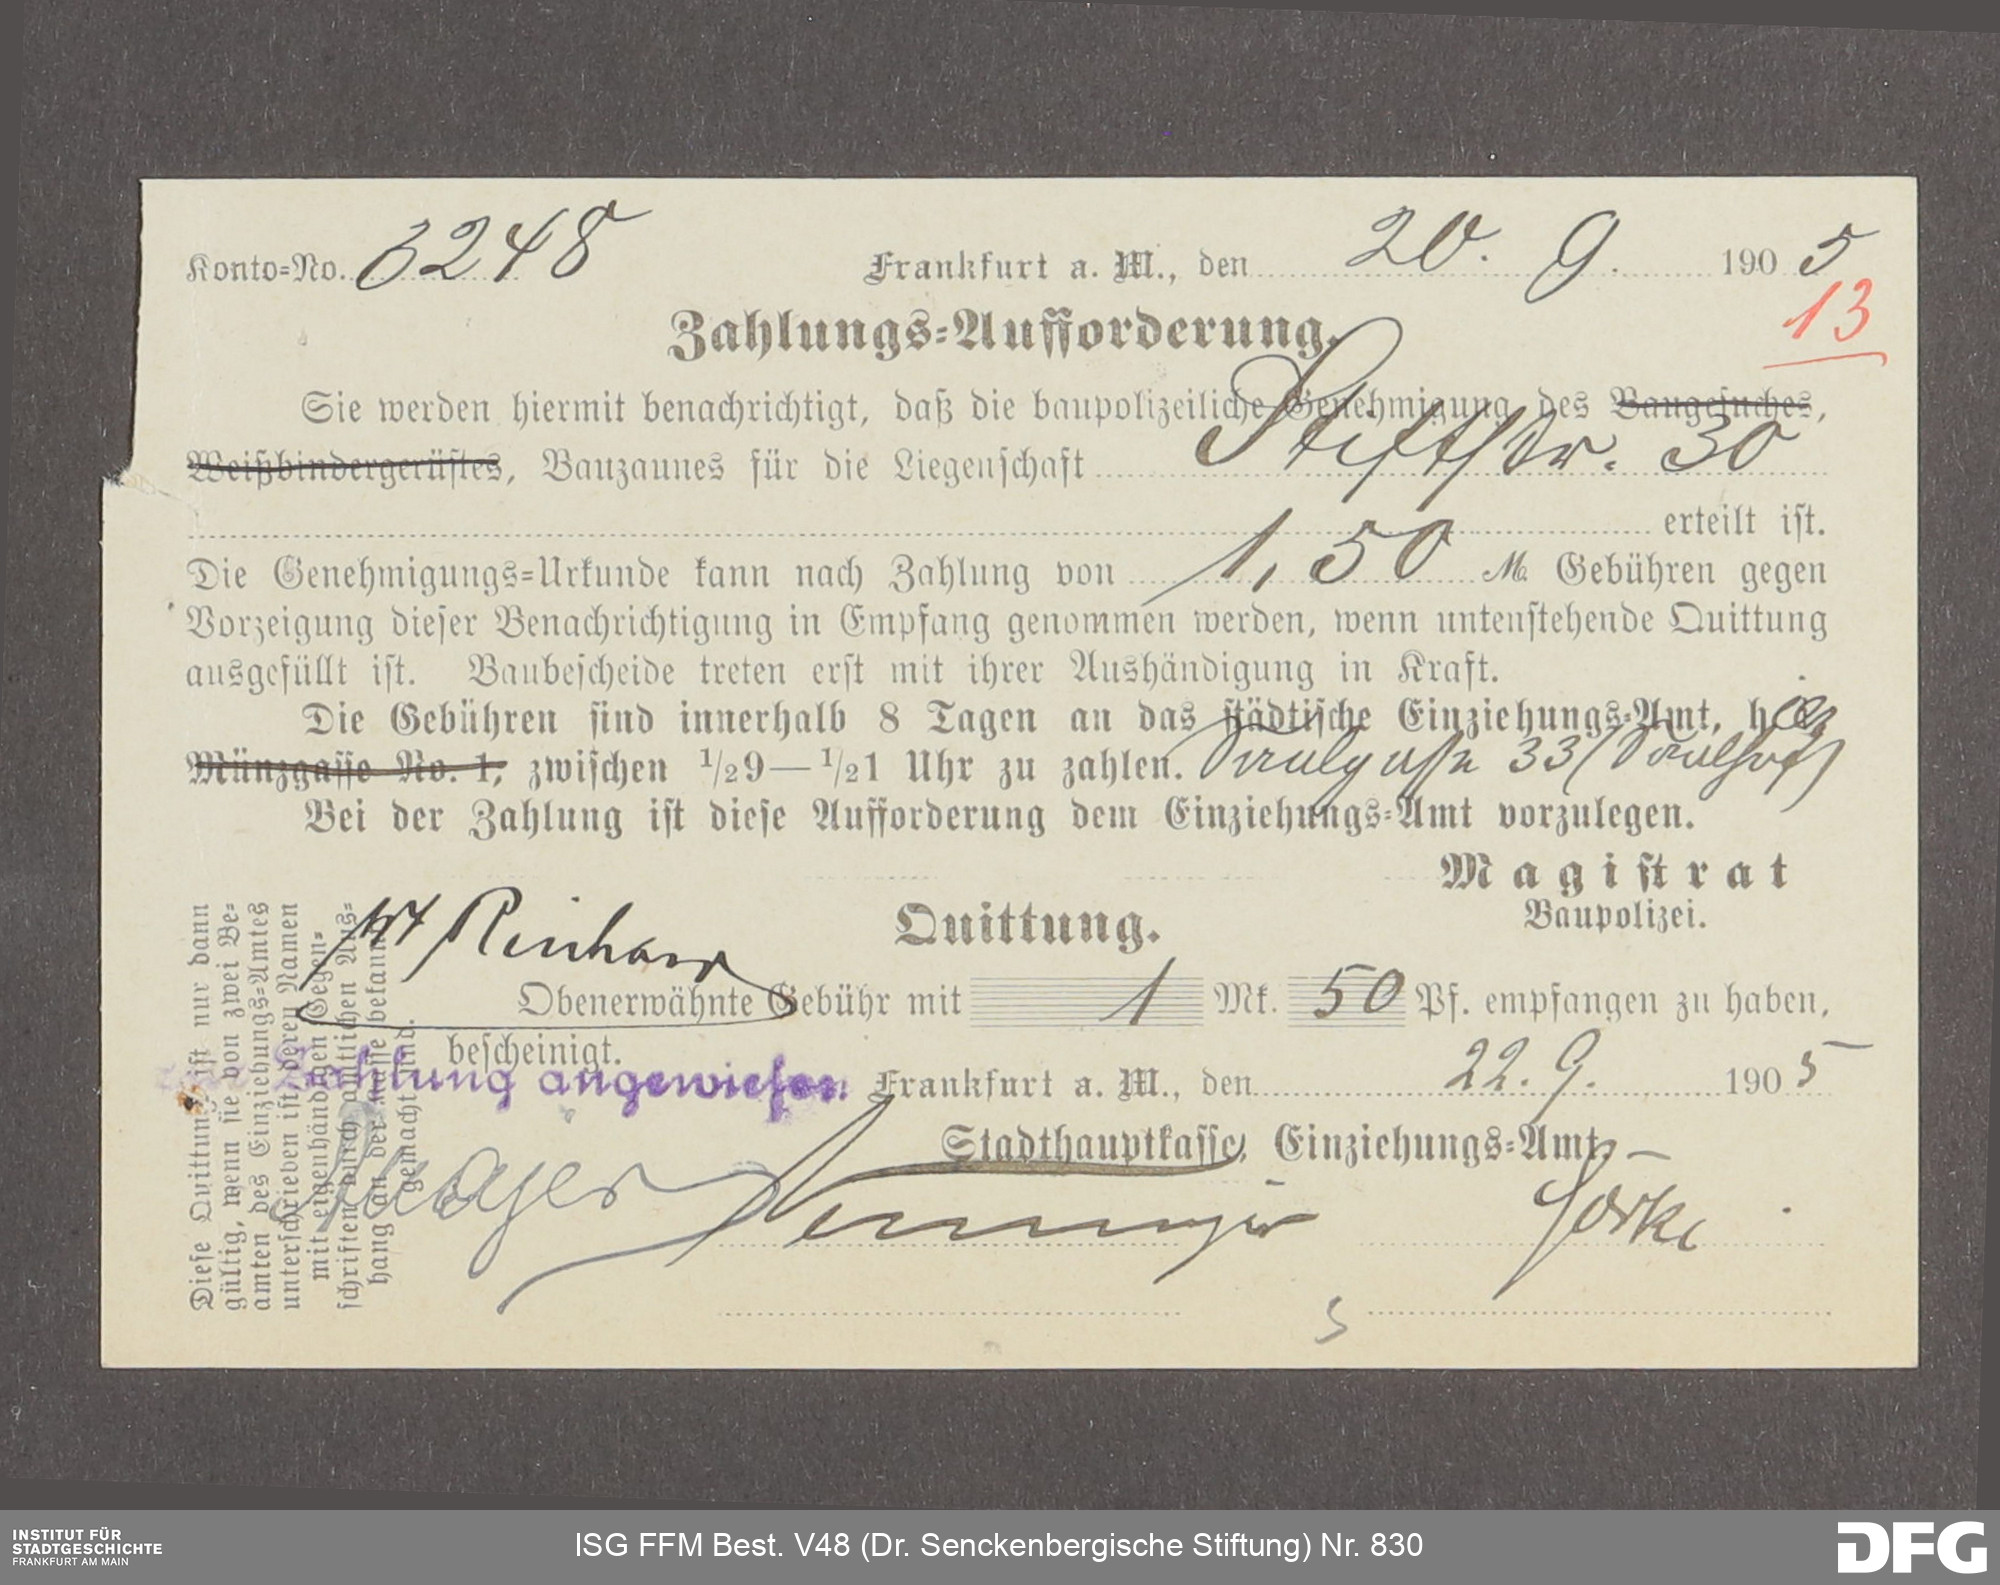 Konto=No. 3248 Frankfurt a. M., den 20. 9. 1905
13
Zahlungs=Aufforderung.
Sie werden hiermit benachrichtigt, daß die baupolizeiliche Genehmigung des Baugesuches,
Weißbindergerüstes, Bauzaunes für die Liegenschaft Stiftstr. 30
erteilt ist.
Die Genehmigungs=Urkunde kann nach Zahlung von 1,50 M. Gebühren gegen
Vorzeigung dieser Benachrichtigung in Empfang genommen werden, wenn untenstehende Quittung
ausgefüllt ist. Baubescheide treten erst mit ihrer Aushändigung in Kraft.
Die Gebühren sind innerhalb 8 Tagen an das städtische Einziehungs=Amt, hier
Münzgasse No. 1, zwischen 1/2 9—1/2 1 Uhr zu zahlen. Paulsgasse 33 (Paulshof)
Bei der Zahlung ist diese Aufforderung dem Einziehungs=Amt vorzulegen.
Magistrat
Baupolizei.
Reinhard
Quittung.
Obenerwähnte Gebühr mit 1 Mk. 50 Pf. empfangen zu haben,
bescheinigt.
Zahlung angewiesen.
Frankfurt a. M., den 22. 9. 1905
Stadthauptkasse, Einziehungs=Amt
Diese Quittung ist nur dann
gültig, wenn sie von zwei Be=
amten des Einziehungs=Amtes
unterschrieben ist, deren Namen
mit eigenhändigen Gegen=
schriften durch amtlichen Aus=
hang an der Kasse bekannt
gemacht sind.
INSTITUT FÜR
STADTGESCHICHTE
FRANKFURT AM MAIN
ISG FFM Best. V48 (Dr. Senckenbergische Stiftung) Nr. 830
DFG